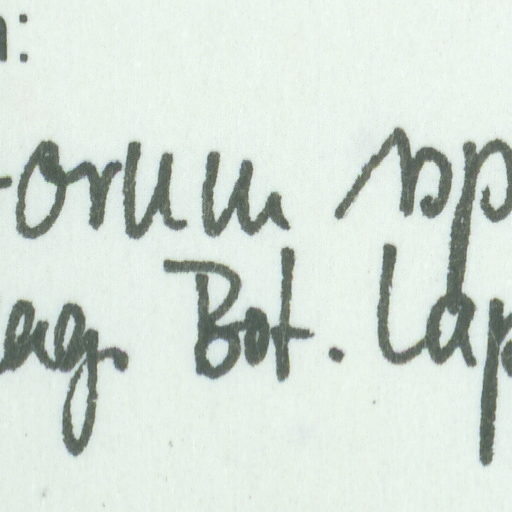 n:
orum sp
ag. Bot. Lap